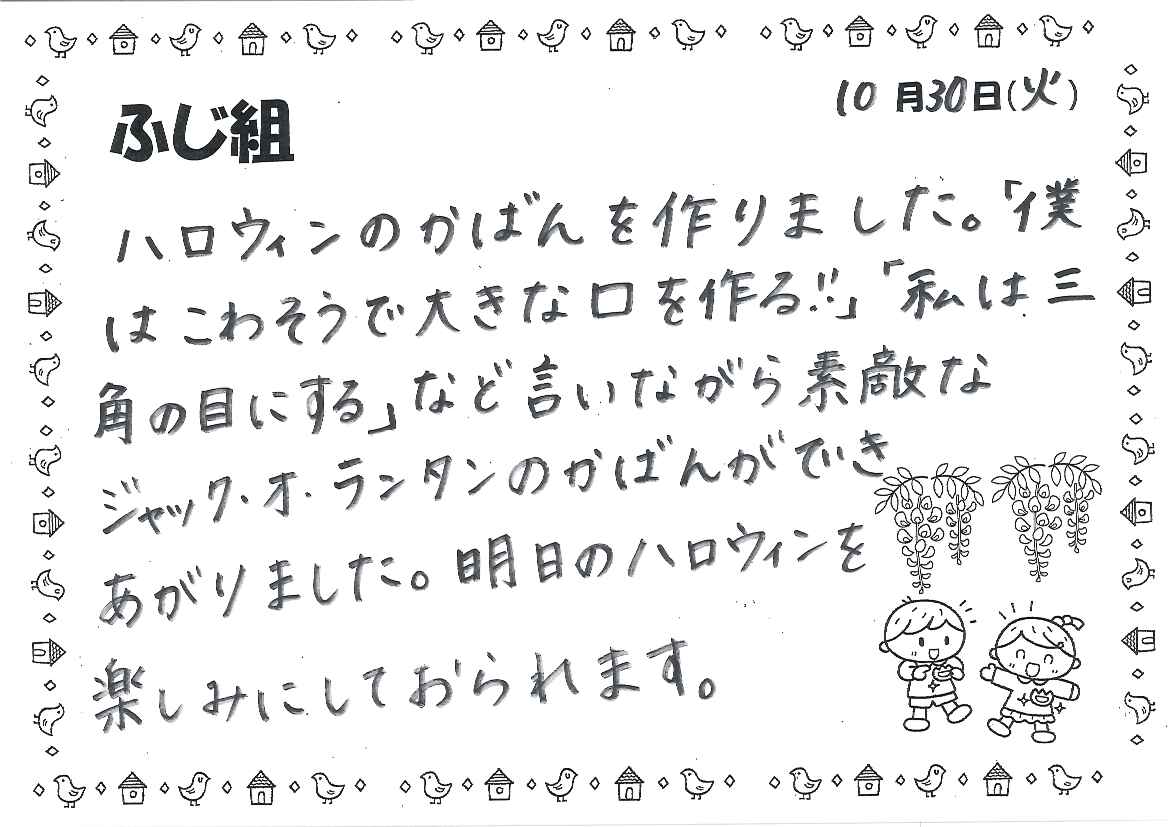 ふじ組
10月30日(火)
ハロウィンのかばんを作りました。「僕
はこわそうで大きな口を作る!!」「私は三
角の目にする」など言いながら素敵な
ジャック・オ・ランタンのかばんができ
あがりました。明日のハロウィンを
楽しみにしておられます。